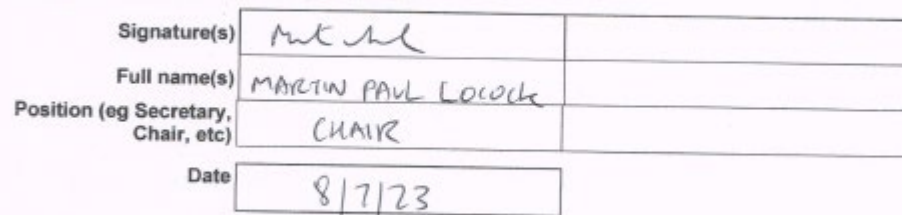 Signature(s)
Full name(s) MARTIN PAUL LOCOCK
Position (eg Secretary,
Chair, etc) CHAIR
Date 8/7/23